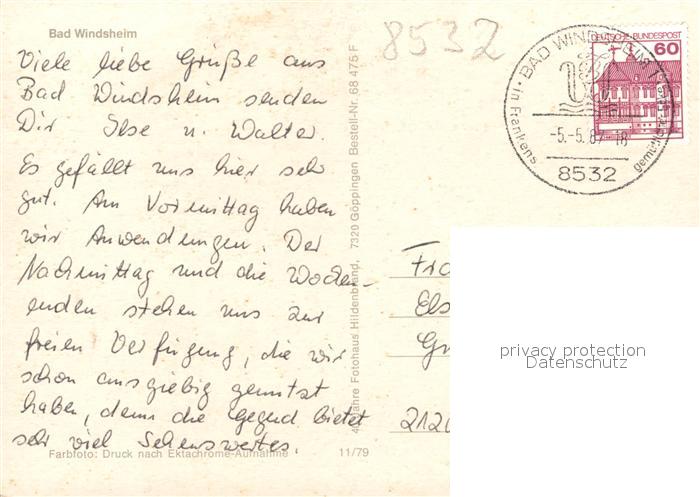 Bad Windsheim
8532
DEUTSCHE BUNDESPOST
60
BAD WINDSHEIM
in Frankens
-5.-5.87-18
8532
Viele liebe Grüße aus
Bad Windsheim senden
Dir Ilse u. Walter.
Es gefällt uns hier sehr
gut. Am Vormittag haben
wir Anwendungen. Der
Nachmittag und die Wochen-
enden stehen uns zur
freien Verfügung, die wir
schon ausgiebig genutzt
haben, denn die Gegend bietet
sehr viel Sehenswertes.
Jahre Fotohaus Hildenbrand, 7320 Göppingen Bestell-Nr. 68 475 F
Els
212
privacy protection
Datenschutz
Farbfoto: Druck nach Ektachrome-Aufnahme 11/79